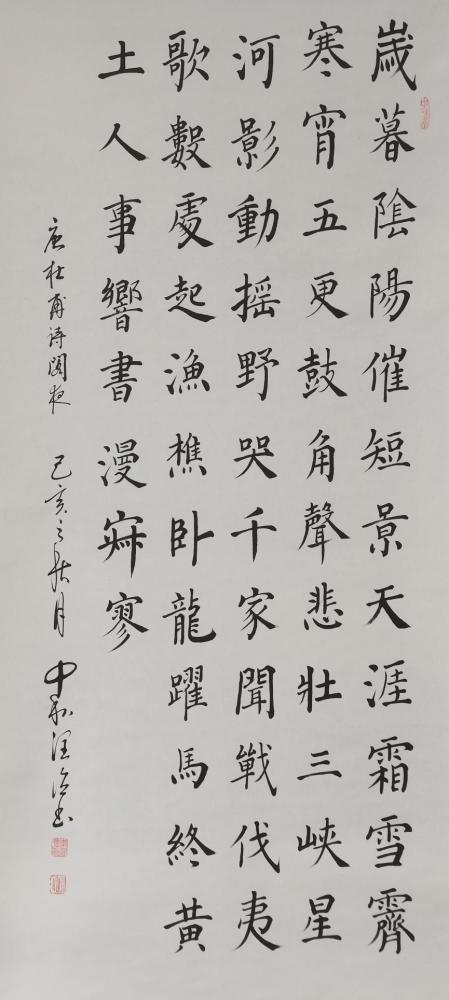 歲暮陰陽催短景天涯霜雪霽
寒宵五更鼓角聲悲壯三峽星
河影動搖野哭千家聞戰伐夷
歌數處起漁樵卧龍躍馬終黃
土人事響書漫寂寥
唐杜甫诗閣夜 己亥之秋月 中和